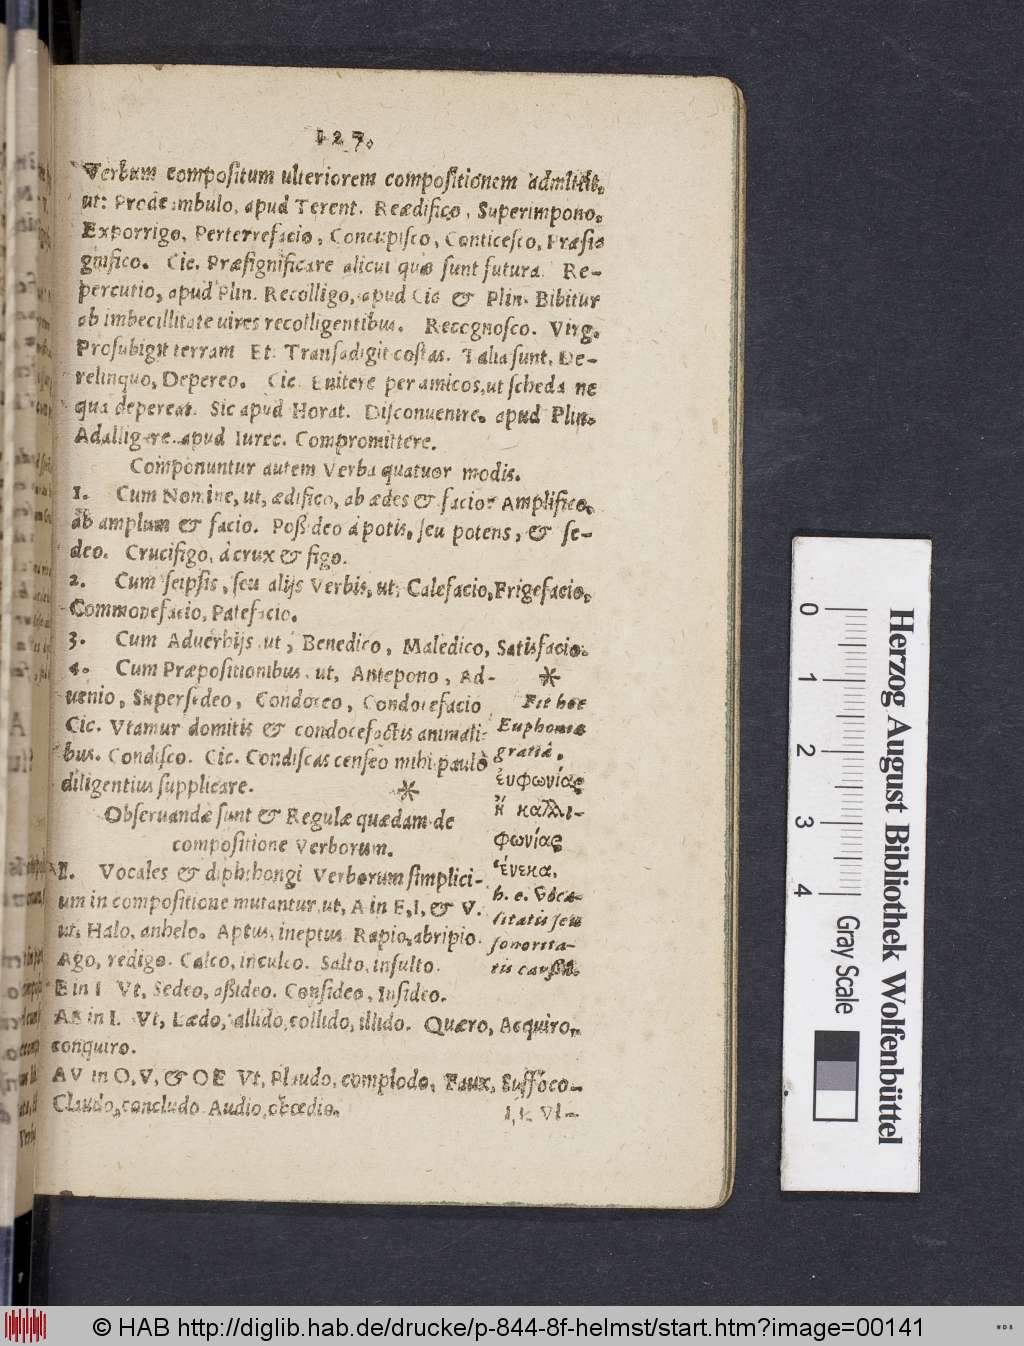 127.
Verbum compositum ulteriorem compositionem admittit,
ut: Prodeambulo, apud Terent. Reædifico, Superimpono,
Exporrigo, Perterrefacio, Concupisco, Conticesco, Præsi-
gnifico. Cic. Præsignificare alicui quæ sunt futura. Re-
percutio, apud Plin. Recolligo, apud Cic & Plin. Bibitur
ab imbecillitate vires recolligentibus. Recognosco. Virg.
Prosubigit terram Et: Transadigit costas. Talia sunt, De-
relinquo, Depereo. Cic. Enitere per amicos, ut scheda ne
qua depereat. Sic apud Horat. Disconuenire, apud Plin.
Adalligare, apud Iurec. Compromittere.
Componuntur autem Verba quatuor modis.
1. Cum Nomine, ut, ædifico, ab ædes & facio: Amplifico,
ab amplum & facio. Poßideo á potis, seu potens, & se-
deo. Crucifigo, à crux & figo.
2. Cum seipsis, seu alijs Verbis, ut, Calefacio, Frigefacio,
Commonefacio, Patefacio.
3. Cum Aduerbijs ut, Benedico, Maledico, Satisfacio.
4. Cum Præpositionibus, ut, Antepono, Ad-
uenio, Supersedeo, Condoceo, Condocefacio
Cic. Vtamur domitis & condocefactis animali-
bus. Condisco. Cic. Condiscas censeo mihi paulò
diligentius supplicare. *
* Fit hoc
Euphoniæ
gratiâ.
ἐυφωνίας
ἢ καλλι-
φωνίας
ἕνεκα,
h. e. Voca-
litatis seu
sonorita-
tis caussâ.
Obseruandæ sunt & Regulæ quædam de
compositione Verborum.
I. Vocales & diphthongi Verborum simplici-
um in compositione mutantur, ut, A in E, I, & V.
ut, Halo, anhelo. Aptus, ineptus Rapio, abripio.
Ago, redigo. Calco, inculco. Salto, insulto.
E in I Vt, Sedeo, aßideo. Consideo, Insideo.
AE in I. Vt, Lædo, allido, collido, illido. Quæro, Acquiro,
conquiro.
AV in O, V, & OE Vt, Plaudo, complodo, Faux, Suffoco-
Claudo, concludo Audio, obœdio.
Herzog August Bibliothek Wolfenbüttel
0 1 2 3 4
Gray Scale
© HAB http://diglib.hab.de/drucke/p-844-8f-helmst/start.htm?image=00141